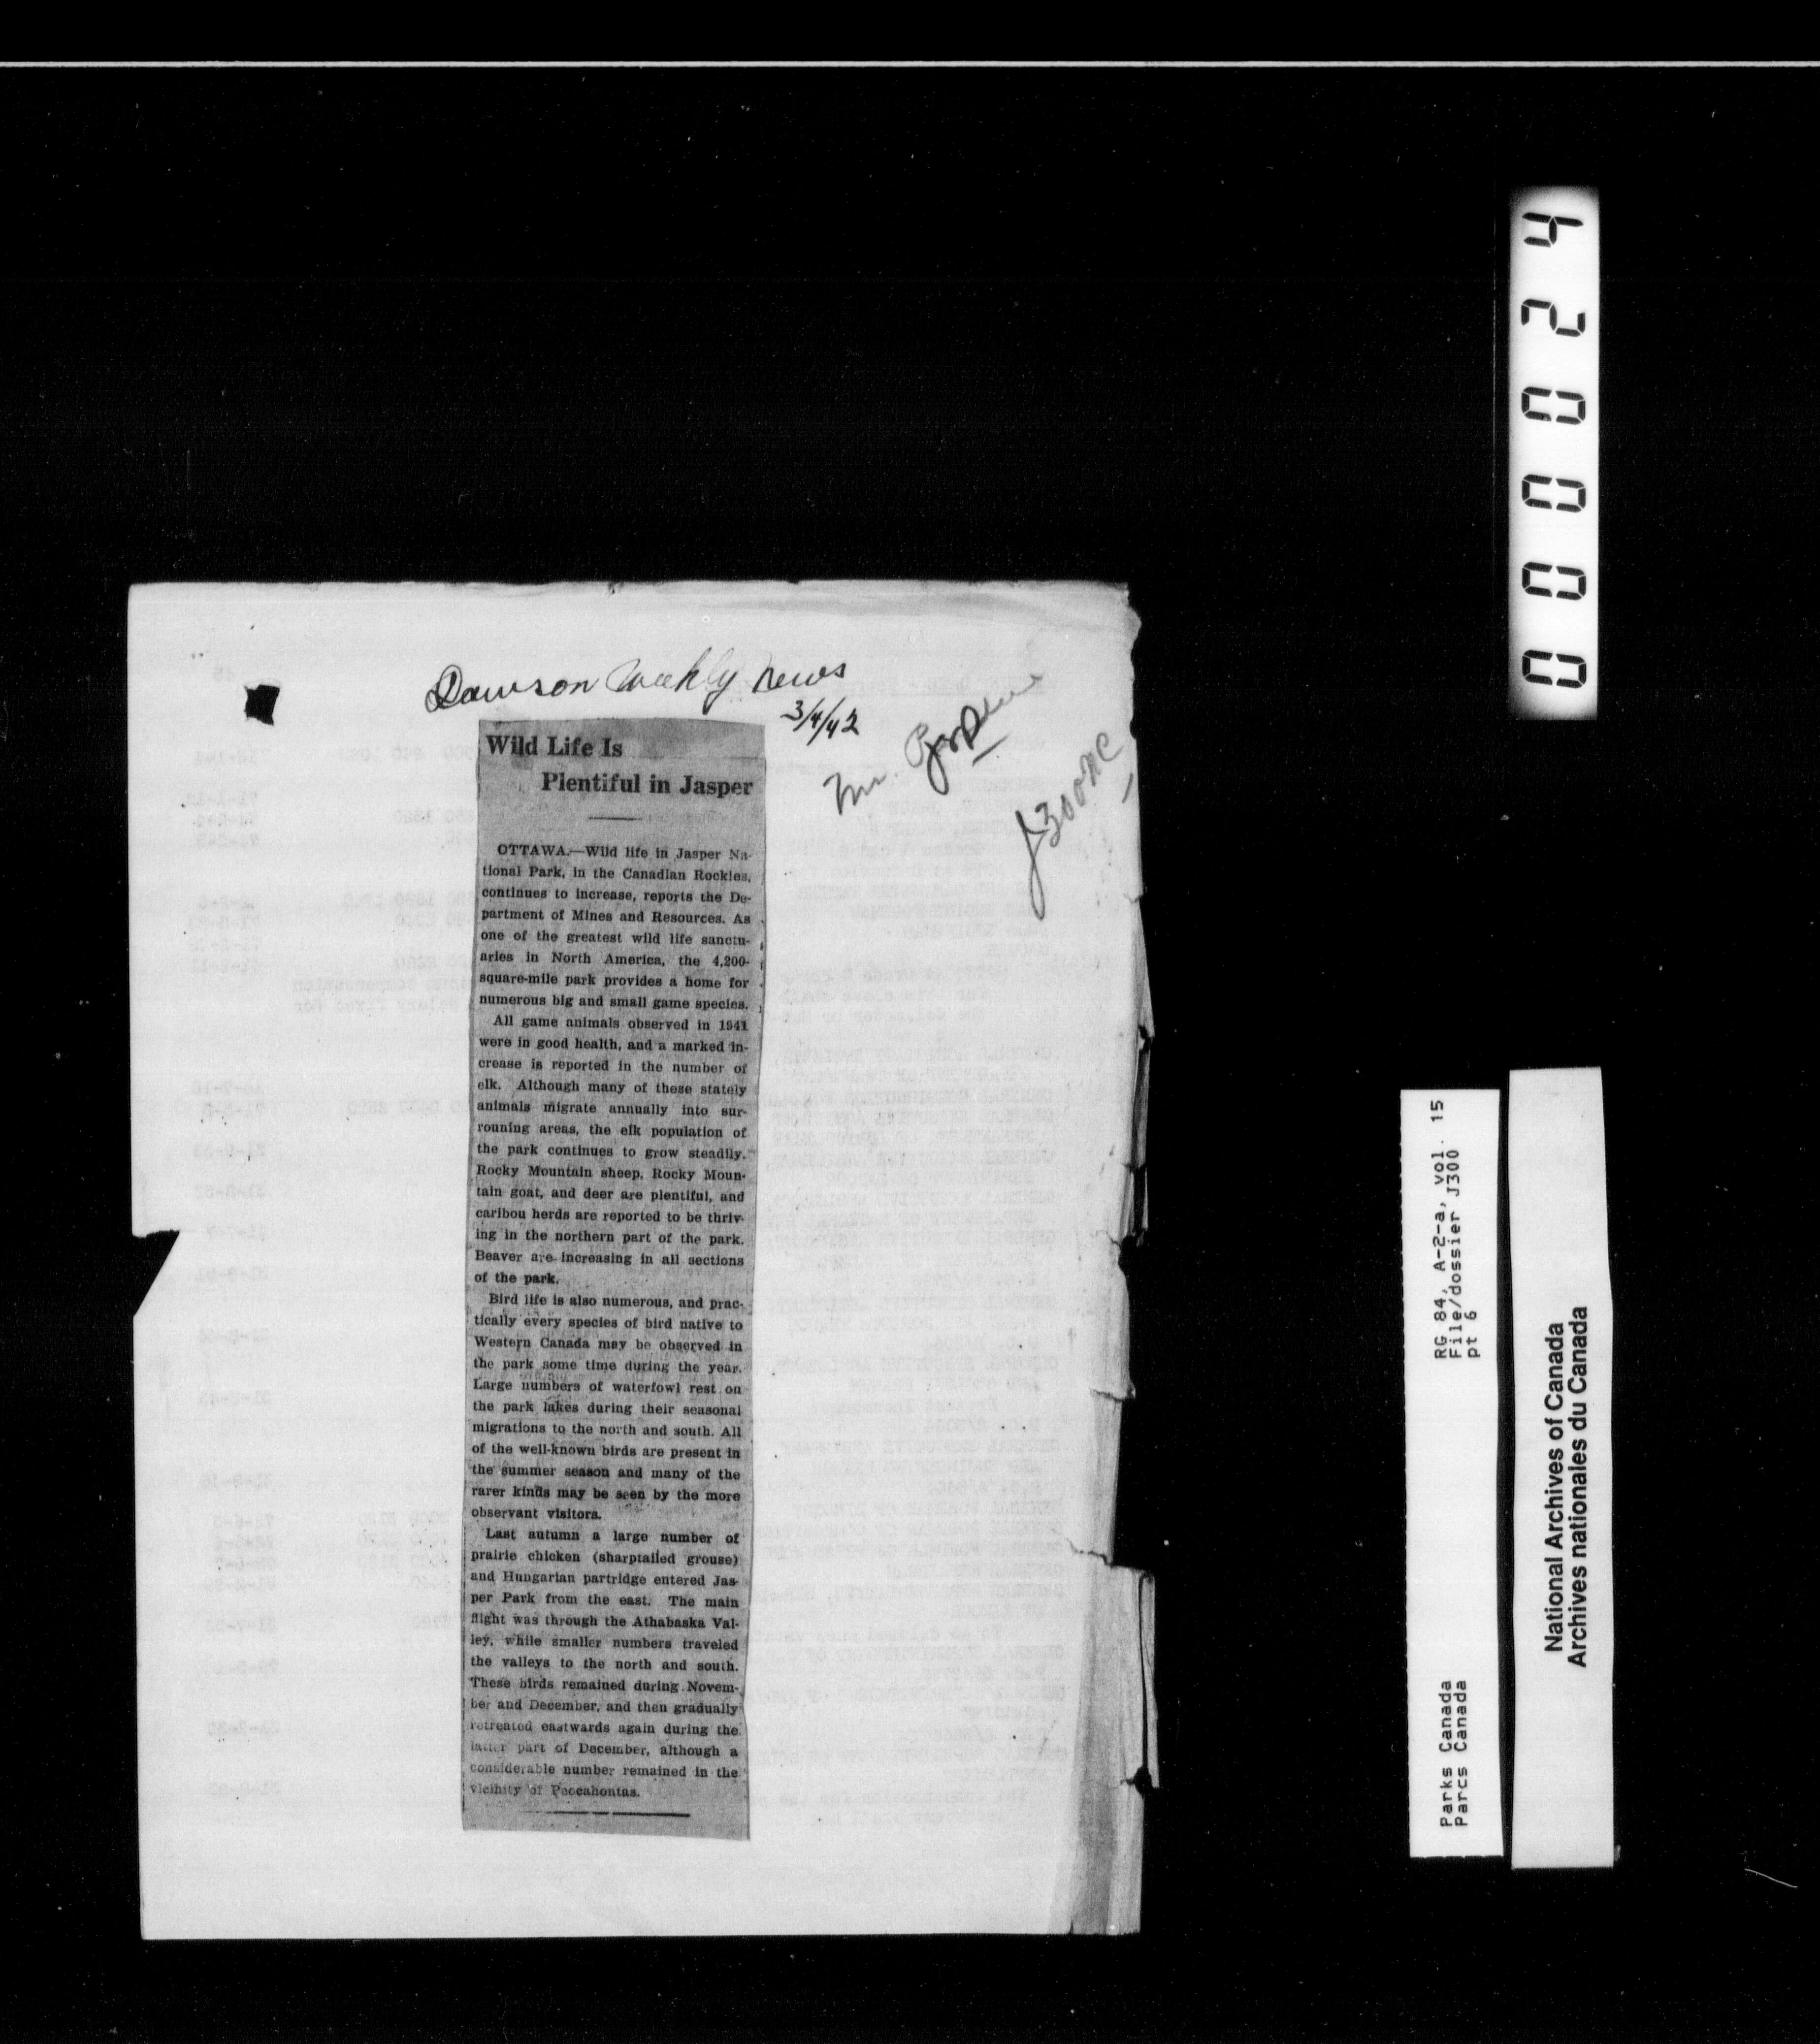 Dawson Weekly News
3/4/42
Mr.
J300
Wild Life Is
Plentiful in Jasper
OTTAWA.—Wild life in Jasper Na-
tional Park, in the Canadian Rockies,
continues to increase, reports the De-
partment of Mines and Resources. As
one of the greatest wild life sanctu-
aries in North America, the 4,200-
square-mile park provides a home for
numerous big and small game species.
All game animals observed in 1941
were in good health, and a marked in-
crease is reported in the number of
elk. Although many of these stately
animals migrate annually into sur-
rouning areas, the elk population of
the park continues to grow steadily.
Rocky Mountain sheep, Rocky Moun-
tain goat, and deer are plentiful, and
caribou herds are reported to be thriv-
ing in the northern part of the park.
Beaver are increasing in all sections
of the park.
Bird life is also numerous, and prac-
tically every species of bird native to
Western Canada may be observed in
the park some time during the year.
Large numbers of waterfowl rest on
the park lakes during their seasonal
migrations to the north and south. All
of the well-known birds are present in
the summer season and many of the
rarer kinds may be seen by the more
observant visitors.
Last autumn a large number of
prairie chicken (sharptailed grouse)
and Hungarian partridge entered Jas-
per Park from the east. The main
flight was through the Athabaska Val-
ley, while smaller numbers traveled
the valleys to the north and south.
These birds remained during Novem-
ber and December, and then gradually
retreated eastwards again during the
latter part of December, although a
considerable number remained in the
vicinity of Pocahontas.
000024
Parks Canada RG 84, A-2-a, vol. 15
Parcs Canada File/dossier J300
pt 6
National Archives of Canada
Archives nationales du Canada